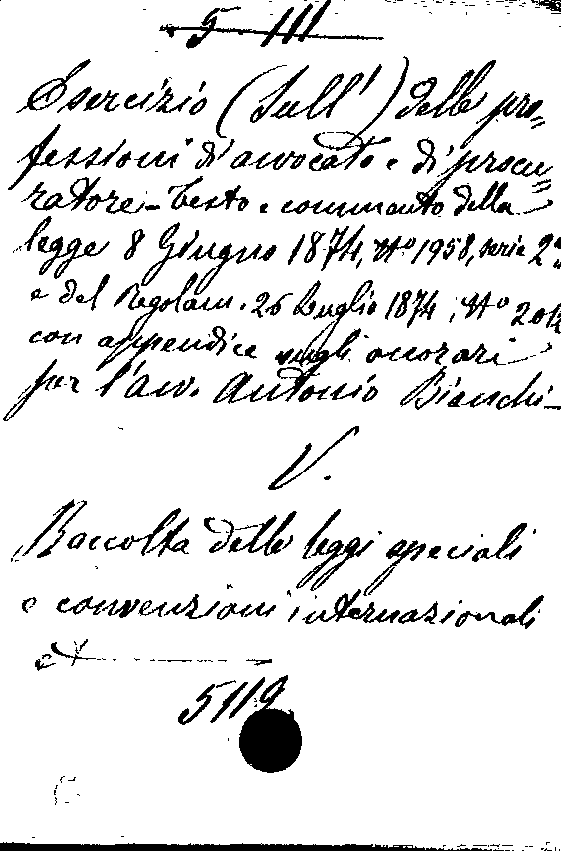 5-III
Esercizio (Sull') delle pro=
fessioni di avvocato e di procu=
ratore - Testo e commento della
legge 8 Giugno 1874, N° 1938, serie 2ª
e del Regolam. 26 Luglio 1874, N° 2012
con appendice sugli onorari
per l'avv. Antonio Bianchi -
V.
Raccolta delle leggi speciali
e convenzioni internazionali
et
5119